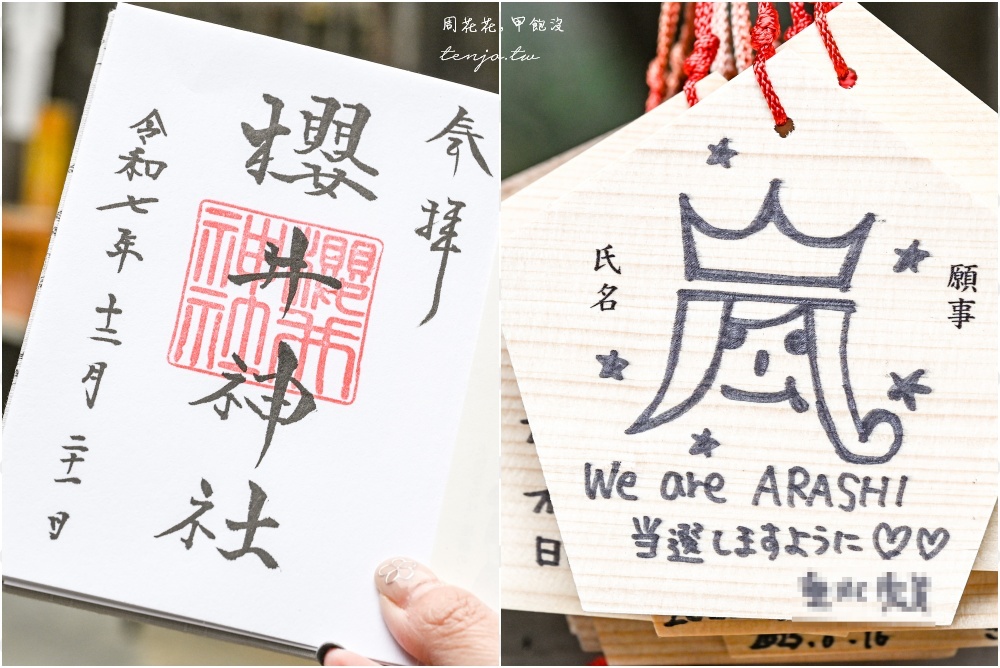 周花花,甲飽沒
tenjo.tw
奉拝
櫻井神社
櫻井神社
令和七年十二月二十一日
願事
氏名
We are ARASHI
当選しますように♡♡
日
2025.8.16